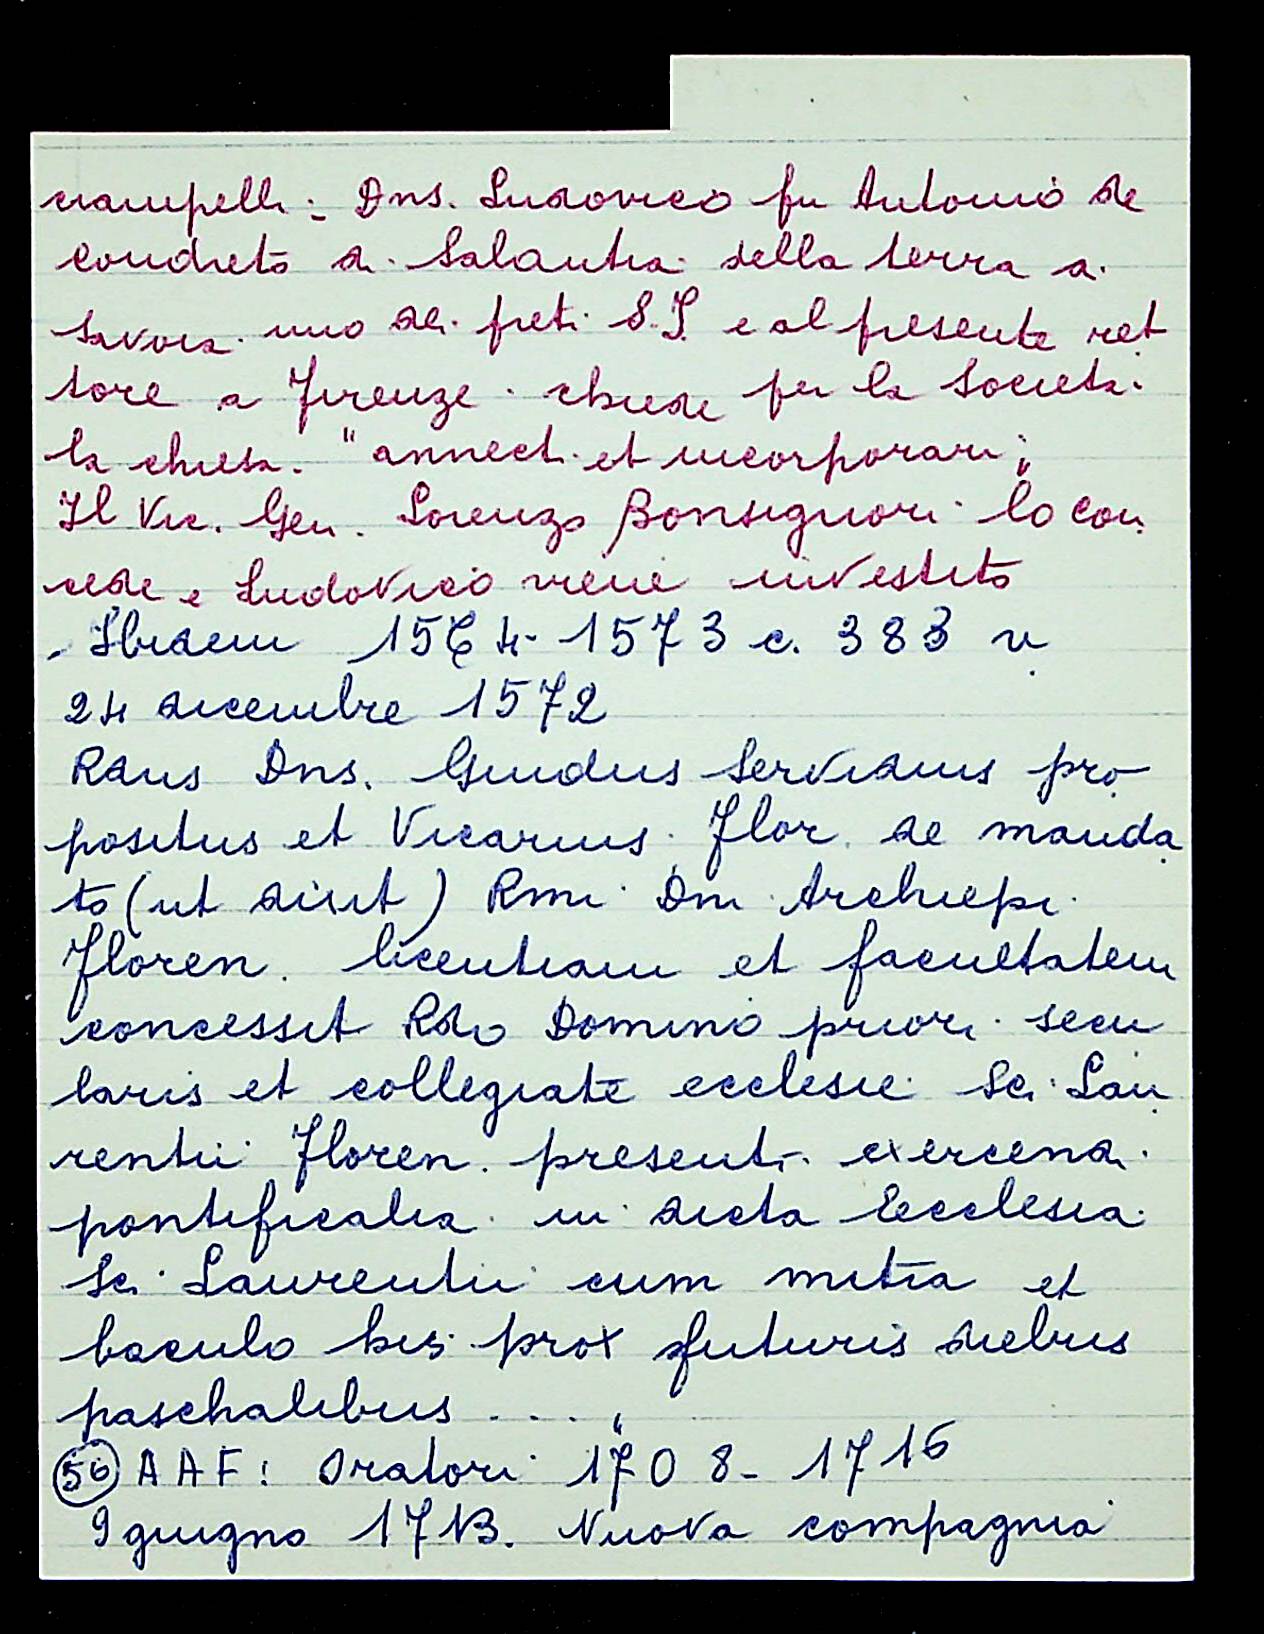 ciampelli: Dns. Ludovico fu Antonio de
Coudreto di Salantia della terra di
Savoia uno dei preti S.J. e al presente ret
tore a Firenze. chiede per la Società
la chiesa. "annecti et incorporari";
Il Vic. Gen. Lorenzo Bonsignori lo con
cede e Ludovico viene investito
. Ibidem 1564-1573 c. 383 v
24 dicembre 1572
Rdus Dns. Guidus Servidius pro
positus et Vicarius Flor. de manda
to (ut dixit) Rmi Dni Archiepi
Floren. licentiam et facultatem
concessit Rdo Domino priori secu
laris et collegiate ecclesie Sci Lau
rentii Floren. presenti exercendi
pontificalia in dicta Ecclesia
Sci Laurentii cum mitra et
baculo his prox futuris diebus
paschalibus ...."
56 AAF: Oratori 1708-1716
9 giugno 1713. Nuova compagnia